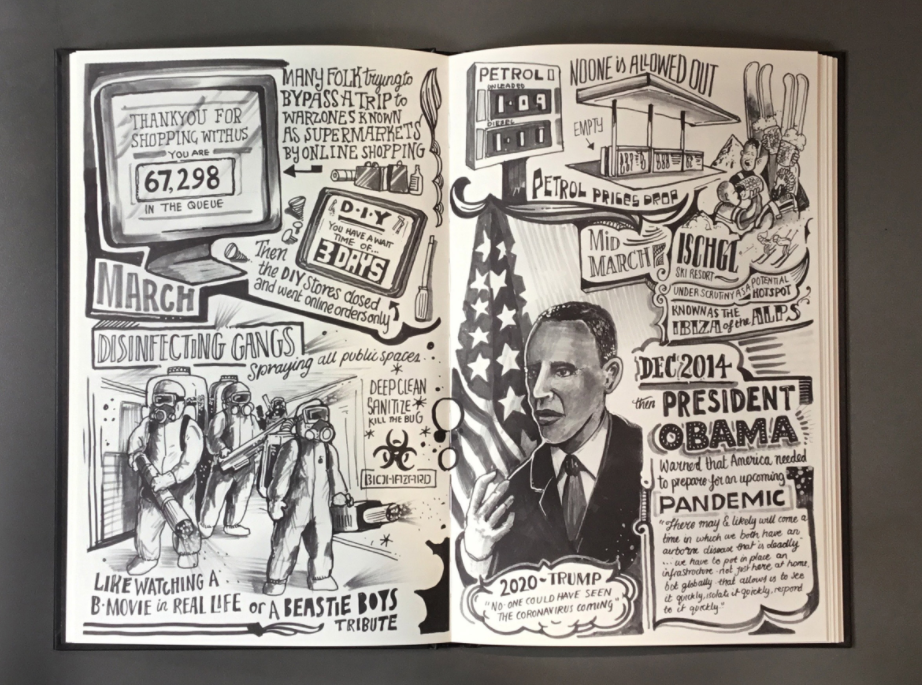 THANKYOU FOR
SHOPPING WITH US
YOU ARE
67,298
IN THE QUEUE
MANY FOLK trying to
BYPASS A TRIP to
WARZONES KNOWN
AS SUPERMARKETS
BY ONLINE SHOPPING
D·I·Y
YOU HAVE A WAIT
TIME OF...
3 DAYS
Then
the DIY Stores closed
and went online orders only
MARCH
DISINFECTING GANGS
Spraying all public spaces.
DEEP CLEAN
SANITIZE
KILL THE BUG
BIOHAZARD
LIKE WATCHING A
B·MOVIE in REAL LIFE or A BEASTIE BOYS
TRIBUTE
PETROL
UNLEADED
1.09
DIESEL
1.10
NOONE is ALLOWED OUT
EMPTY
PETROL PRICES DROP
MiD
MARCH
ISCHGL
SKI RESORT
UNDER SCRUTINY AS A POTENTIAL
HOTSPOT
KNOWN AS THE
IBIZA of the ALPS
DEC 2014
then PRESIDENT
OBAMA
Warned that America needed
to prepare for an upcoming
PANDEMIC
"There may & likely will come a
time in which we both have an
airborne disease that is deadly.
... we have to put in place an
infrastructure - not just here at home,
but globally - that allows us to see
it quickly, isolate it quickly, respond
to it quickly"
2020 - TRUMP
"NO-ONE COULD HAVE SEEN
THE CORONAVIRUS COMING"